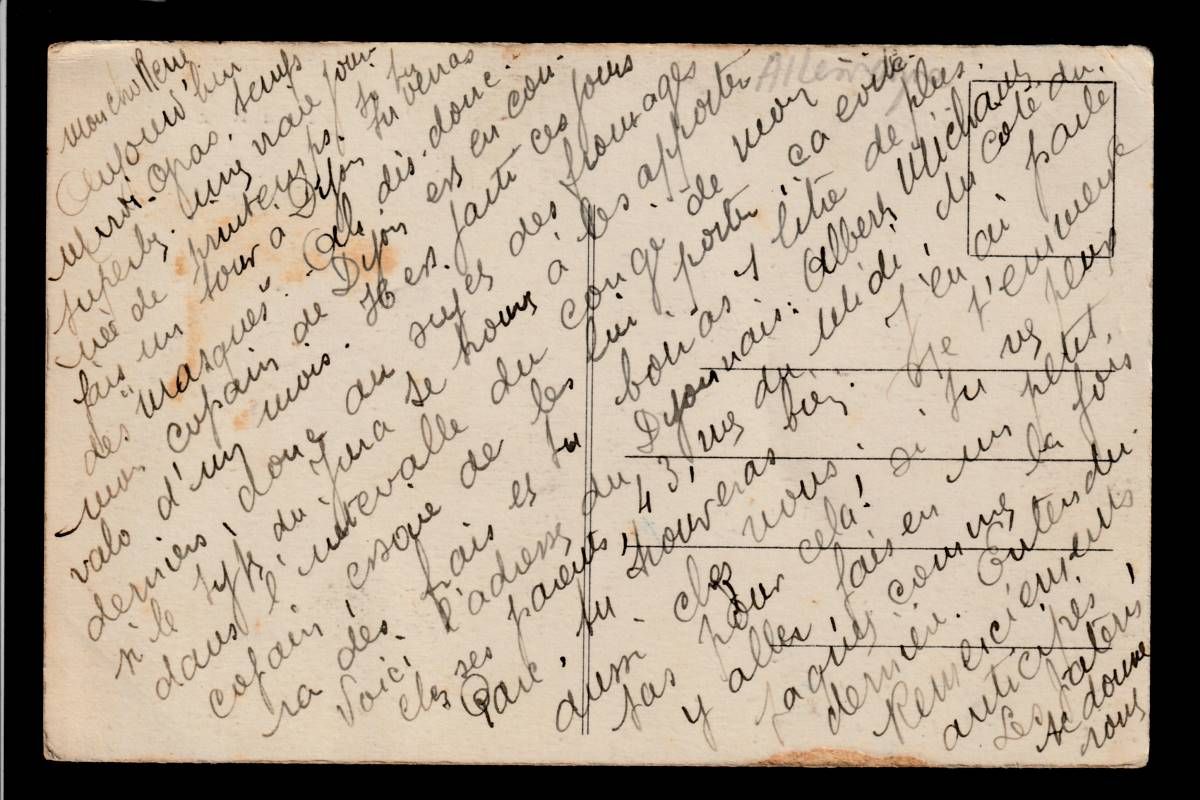 mon cho René
Aujourd'hui
mardi-gras. temps
superbe. une vraie jour-
née de printemps. Tu
fais un tour à Dijon tu verras
des "masques". Ah dis-donc.
mon copain de Dijon est en con-
valo d'un mois. Il est parti ces jours
derniers, donc au sujet des fromages
si le type du Jura se trouve à les apporter
dans l'intervalle du congé de mon
copain, de les lui porter, ça évite-
ra des frais et tu boiras 1 litre de plus.
Voici l'adresse du Dijonnais: Albert Michaux
chez ses parents, 43, rue du Midi, du coté du
Parc, tu trouveras bien j'en ai parlé
aussi chez vous. Je t'emmerde
pas pour cela! si tu ne peux
y aller, fais en un petit,
jaquis comme la fois
dernière. Entendu.
Remerciements
anticipés
Le frater,
Ac donne
nous
Allemagne